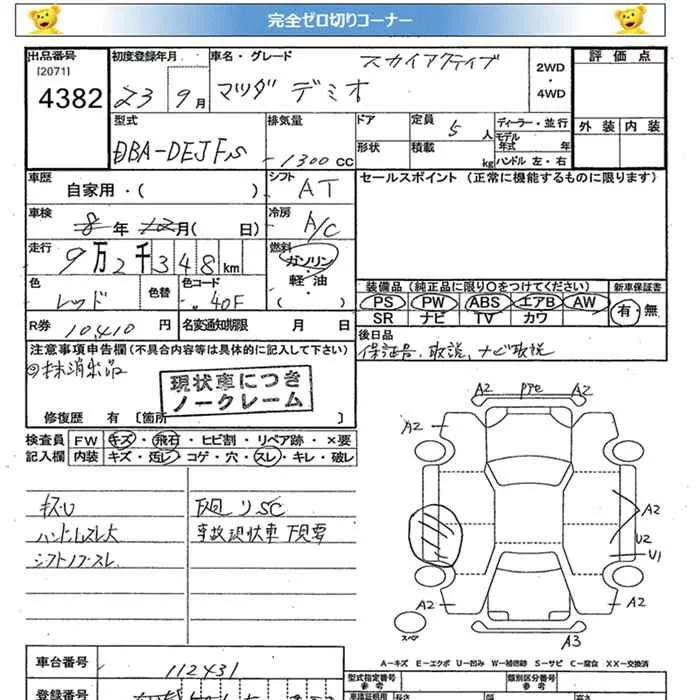 完全ゼロ切りコーナー
出品番号 初度登録年月 車名・グレード スカイアクティブ 2WD・4WD 評価点
[2071]
4382 23 9月 マツダ デミオ
型式 排気量 ドア 定員 5人 ディーラー・並行 外装 内装
DBA-DEJFS 1300cc 形状 積載 kg モデル年式 年
ハンドル 左・右
車歴 自家用・( ) シフト AT セールスポイント (正常に機能するものに限ります)
車検 8年 12月( 日) 冷房 A/C
走行 9万2千348km 燃料 ガソリン・軽油・( )
色 レッド 色替 色コード 40F 装備品(純正品に限り○をつけてください) 新車保証書
PS PW ABS エアB AW 有・無
SR ナビ TV カワ
R券 10,410円 名変通知期限 月 日 後日品
保証書、取説、ナビ取説
注意事項申告欄(不具合内容等は具体的に記入して下さい)
抹消出品
現状車につき
ノークレーム
修復歴 有 [箇所 ]
検査員 FW キズ・飛石・ヒビ割・リペア跡・×要
記入欄 内装 キズ・汚レ・コゲ・穴・スレ・キレ・破レ
キズU 下廻りSC
ハンドルスレ大 事故現状車 下見要
シフトノブスレ
A2 A2
A2
A2
U2
U1
A2 A2
スペア A3
A-キズ E-エクボ U-凹み W-補修跡 S-サビ C-腐食 XX-交換済
車台番号 112431 型式指定番号 参考 類別区分番号 参考
登録番号 長さ 幅 高さ